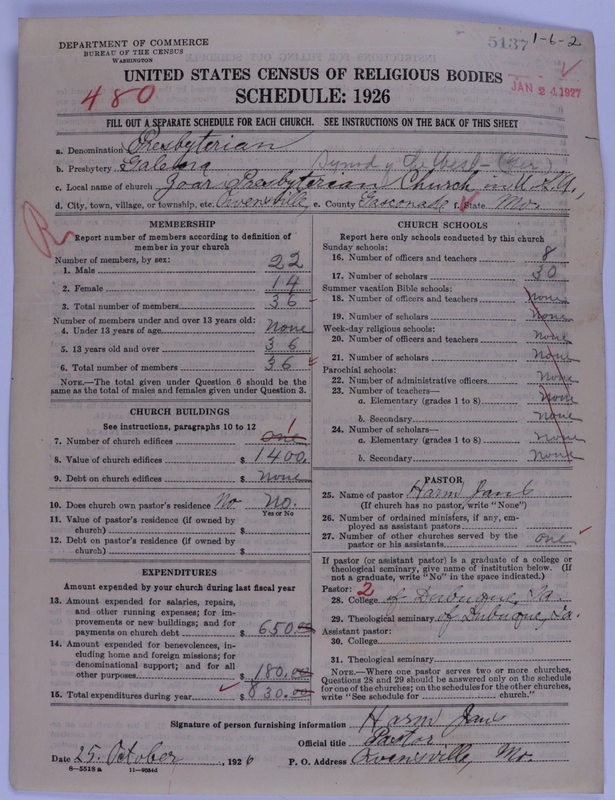 DEPARTMENT OF COMMERCE
BUREAU OF THE CENSUS
WASHINGTON
5137 1-6-2
UNITED STATES CENSUS OF RELIGIOUS BODIES
JAN 24 1927
480
SCHEDULE: 1926
FILL OUT A SEPARATE SCHEDULE FOR EACH CHURCH. SEE INSTRUCTIONS ON THE BACK OF THIS SHEET
a. Denomination Presbyterian
b. Presbytery Galena Synod of the West
c. Local name of church Zoar Presbyterian Church in U.S.A.,
d. City, town, village, or township, etc. Owensville e. County Gasconade f. State Mo.
R
MEMBERSHIP
Report number of members according to definition of
member in your church
Number of members, by sex:
1. Male 22
2. Female 14
3. Total number of members 36
Number of members under and over 13 years old:
4. Under 13 years of age None
5. 13 years old and over 36
6. Total number of members 36
NOTE.—The total given under Question 6 should be
the same as the total of males and females given under Question 3.
CHURCH BUILDINGS
See instructions, paragraphs 10 to 12
7. Number of church edifices one 1
8. Value of church edifices $ 1400.
9. Debt on church edifices $ None
10. Does church own pastor's residence No No.
Yes or No
11. Value of pastor's residence (if owned by
church) $
12. Debt on pastor's residence (if owned by
church) $
EXPENDITURES
Amount expended by your church during last fiscal year
13. Amount expended for salaries, repairs,
and other running expenses; for im-
provements or new buildings; and for
payments on church debt $ 650.00
14. Amount expended for benevolences, in-
cluding home and foreign missions; for
denominational support; and for all
other purposes $ 180.00
15. Total expenditures during year $ 830.00
CHURCH SCHOOLS
Report here only schools conducted by this church
Sunday schools:
16. Number of officers and teachers 8
17. Number of scholars 30
Summer vacation Bible schools:
18. Number of officers and teachers None
19. Number of scholars None
Week-day religious schools:
20. Number of officers and teachers None
21. Number of scholars None
Parochial schools:
22. Number of administrative officers None
23. Number of teachers—
a. Elementary (grades 1 to 8) None
b. Secondary None
24. Number of scholars—
a. Elementary (grades 1 to 8) None
b. Secondary None
PASTOR
25. Name of pastor Harm
(If church has no pastor, write "None")
26. Number of ordained ministers, if any, em-
ployed as assistant pastors
27. Number of other churches served by the
pastor or his assistants one
If pastor (or assistant pastor) is a graduate of a college or
theological seminary, give name of institution below. (If
not a graduate, write "No" in the space indicated.)
Pastor: 2
28. College of Dubuque, Ia.
29. Theological seminary of Dubuque, Ia.
Assistant pastor:
30. College
31. Theological seminary
NOTE.—Where one pastor serves two or more churches,
Questions 28 and 29 should be answered only on the schedule
for one of the churches; on the schedules for the other churches,
write "See schedule for church."
Signature of person furnishing information Harm
Official title Pastor
Date 25. October, 1926 P. O. Address Owensville, Mo.
8—5518 a 11—9054d